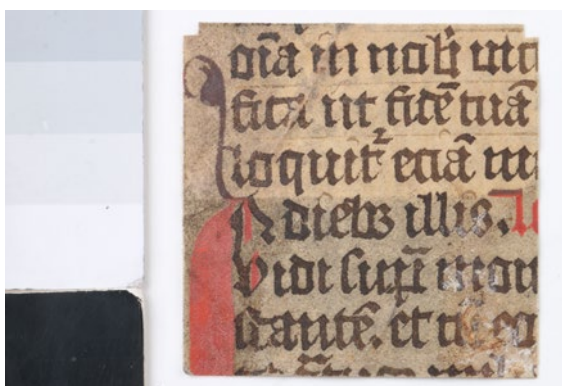 oīa in nob̄ uici
fica ut fidē tuā
loquit᷑ eciā
N diebꝫ illis.
Vidi sup̄ mon
stantē. et cū eo